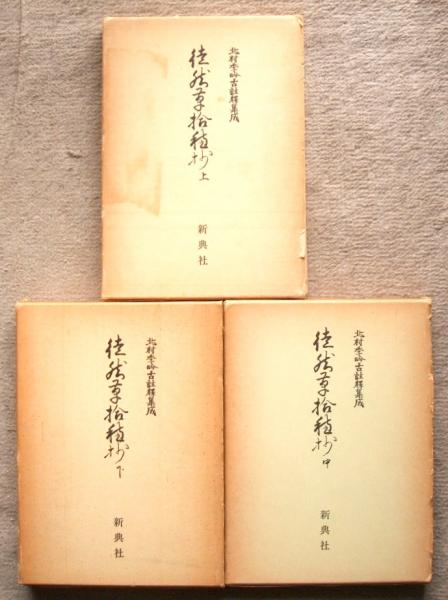 北村季吟古註釋集成
徒然草拾穂抄 上
新典社
北村季吟古註釋集成
徒然草拾穂抄 下
新典社
北村季吟古註釋集成
徒然草拾穂抄 中
新典社